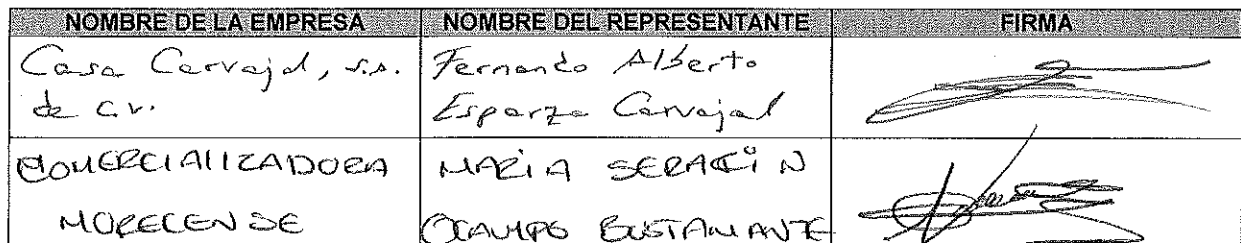 NOMBRE DE LA EMPRESA NOMBRE DEL REPRESENTANTE FIRMA
Casa Carvajal, s.a. Fernando Alberto
de c.v. Esparza Carvajal
COMERCIALIZADORA MARIA SERAFÍN
MORECENSE OCAMPO BUSTAMANTE